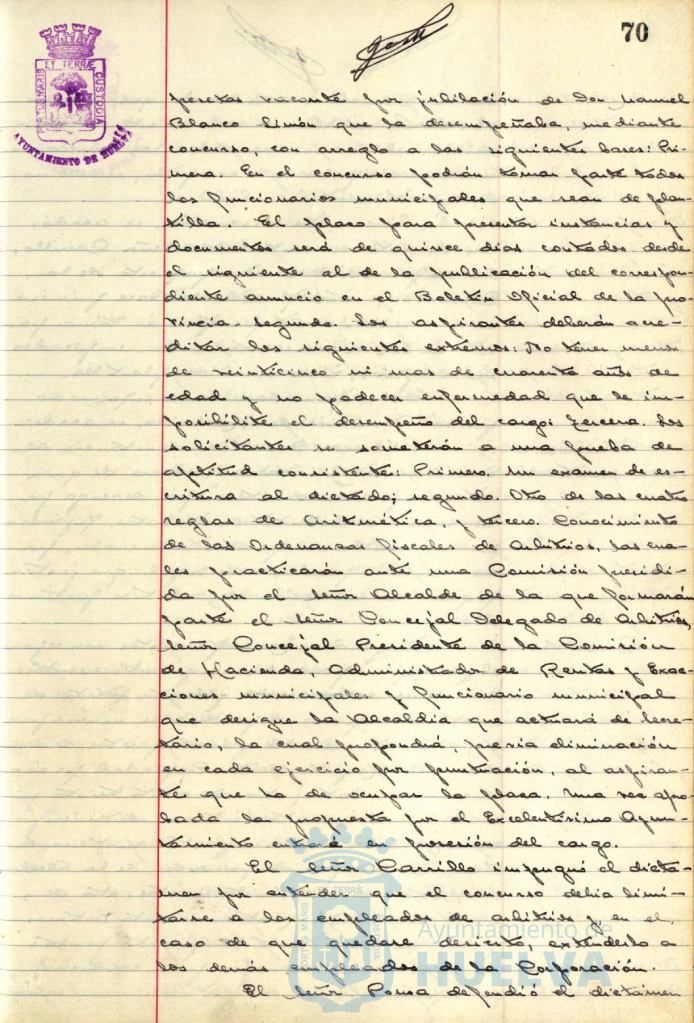 70
PORTUS MARIS ET TERRAE CUSTODIA
AYUNTAMIENTO DE HUELVA
pesetas vacante por jubilación de Don Manuel
Blanco Simón que la desempeñaba, mediante
concurso, con arreglo a las siguientes bases: Pri-
mera. En el concurso podrán tomar parte todos
los funcionarios municipales que sean de plan-
tilla. El plazo para presentar instancias y
documentos será de quince dias contados desde
el siguiente al de la publicación del correspon-
diente anuncio en el Boletin Oficial de la pro-
vincia. Segunda. Los aspirantes deberán acre-
ditar los siguientes extremos: No tener menos
de veinticinco ni mas de cuarenta años de
edad y no padecer enfermedad que le im-
posibilite el desempeño del cargo; Tercera. Los
solicitantes se someterán a una prueba de
aptitud consistente: Primero. Un examen de es-
critura al dictado; segundo. Otro de las cuatro
reglas de Aritmética, y tercero. Conocimiento
de las Ordenanzas fiscales de Arbitrios, las cua-
les practicarán ante una Comisión presidi-
da por el Señor Alcalde de la que formarán
parte el Señor Concejal Delegado de Arbitrios,
Señor Concejal Presidente de la Comisión
de Hacienda, Administrador de Rentas y Exac-
ciones municipales y funcionario municipal
que designe la Alcaldia que actuará de Secre-
tario, la cual propondrá, previa eliminación
en cada ejercicio por puntuación, al aspiran-
te que ha de ocupar la plaza. Una vez apro-
bada la propuesta por el Excelentisimo Ayun-
tamiento entrará en posesión del cargo.
El Señor Carrillo impugnó el dicta-
men por entender que el concurso debia limi-
tarse a los empleados de arbitrios y en el
caso de que quedare desierto, extenderlo a
los demás empleados de la Corporación.
El Señor Ponsa defendió el dictámen
Ayuntamiento de
HUELVA